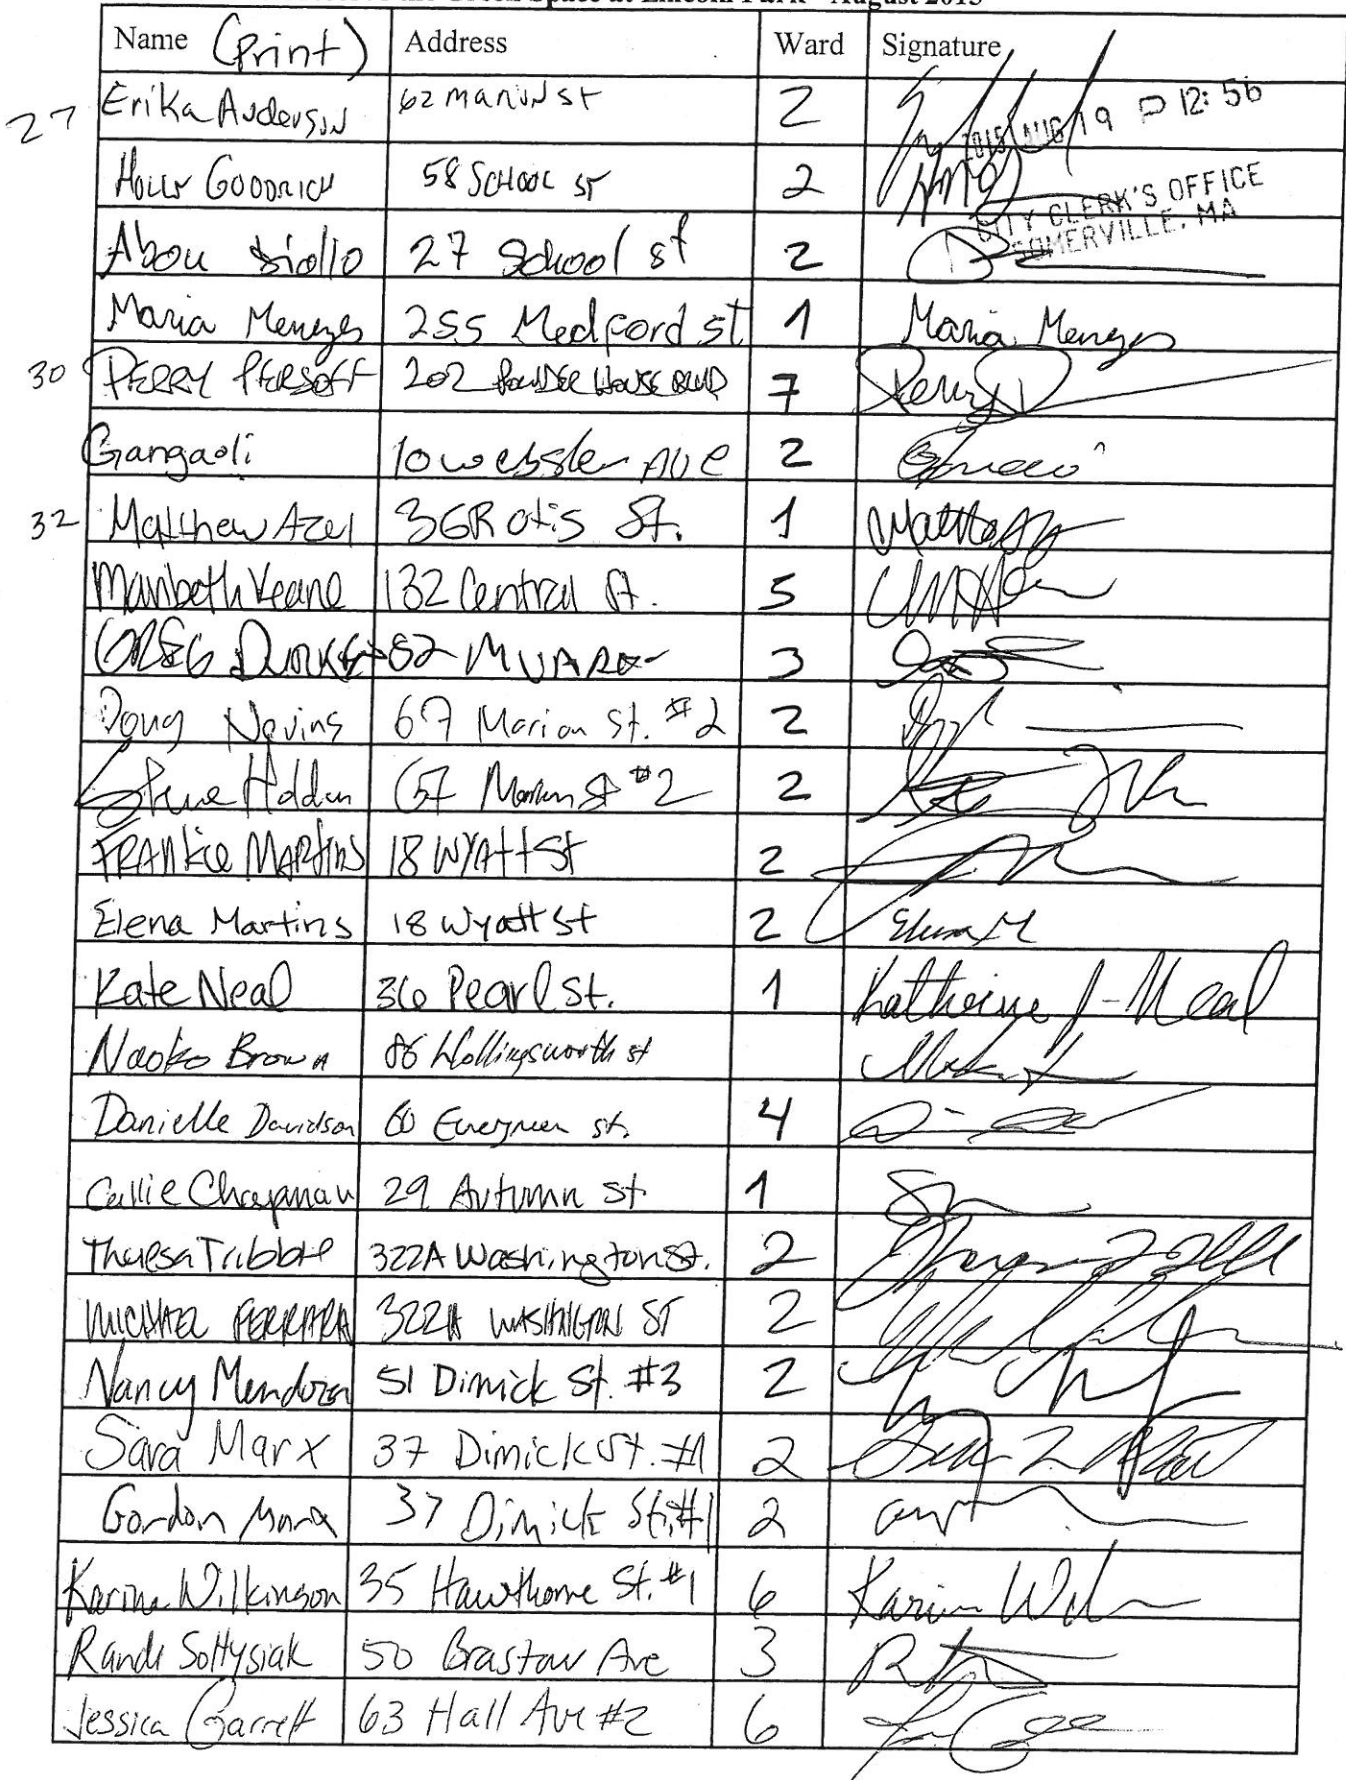 Green Space at Lincoln Park - August 2015
Name (Print) Address Ward Signature
2015 AUG 19 P 12: 56
CITY CLERK'S OFFICE
SOMERVILLE, MA
27 Erika Anderson 62 marion st 2
Holly Goodrich 58 School st 2
Abou Diallo 27 School st 2
Maria Menezes 255 Medford st 1 Maria Menezes
30 PERRY PERSOFF 202 Powder House BLVD 7
Gangadi 10 webster Ave 2
32 Matthew Azel 36R Otis St. 1
Maribeth Keane 132 Central St. 5
GREG 82 3
Doug Nevins 67 Marion St. #2 2
Steve Holden 67 Marion St #2 2
FRANKie MARtins 18 WYAtt St 2
Elena Martins 18 Wyatt St 2 Elena M
Kate Neal 36 Pearl St. 1 Katherine J-Neal
Naoko Brown 86 Hollingsworth st
Danielle Davidson 60 Evergreen st. 4
Callie Chapman 29 Autumn St 1
Theresa Tribble 322A Washington St. 2
MICHAEL FERRARA 322A WASHINGTON ST 2
Nancy Mendoza 51 Dimick St. #3 2
Sara Marx 37 Dimick St. #1 2
Gordon Marx 37 Dimick St. #1 2
Karina Wilkinson 35 Hawthorne St. #1 6
Randi Soltysiak 50 Brastow Ave 3
Jessica Garrett 63 Hall Ave #2 6